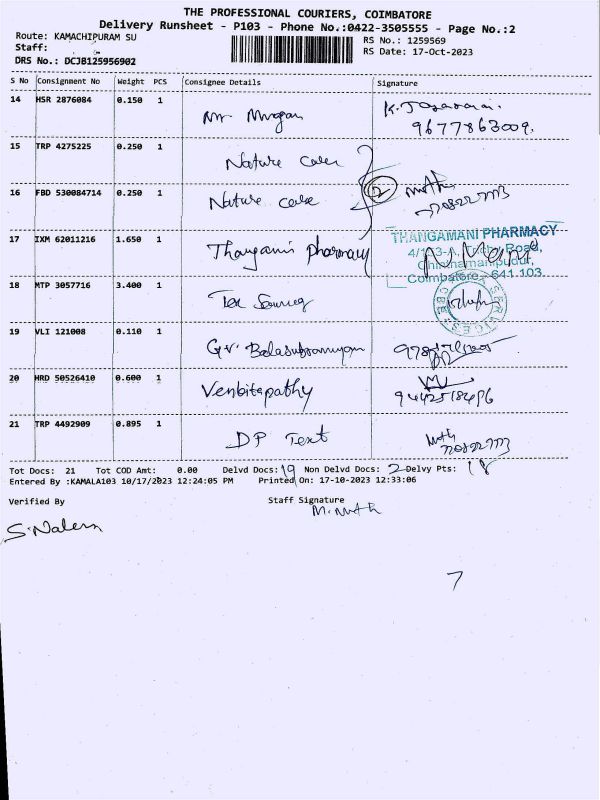 THE PROFESSIONAL COURIERS, COIMBATORE
Delivery Runsheet - P103 - Phone No.:0422-3505555 - Page No.:2
Route: KAMACHIPURAM SU
RS No.: 1259569
Staff:
RS Date: 17-Oct-2023
DRS No.: DCJB125956902
S No Consignment No Weight PCS Consignee Details Signature
14 HSR 2876084 0.150 1 Mr Murgan K.
9677863009.
15 TRP 4275225 0.250 1 Nature Care
16 FBD 530084714 0.250 1 Nature care 2
17 IXM 62011216 1.650 1 Thangami pharmacy
THANGAMANI PHARMACY
Road,
Chinthamanipudur,
Coimbatore - 641 103.
18 MTP 3057716 3.400 1
SERVICES
CBE
19 VLI 121008 0.110 1 G.V. Balasubramaniyam
20 HRD 50526410 0.600 1 Venbitapathy
9442518496
21 TRP 4492909 0.895 1 DP Text
Tot Docs: 21 Tot COD Amt: 0.00 Delvd Docs: 19 Non Delvd Docs: 2 Delvy Pts: 18
Entered By :KAMALA103 10/17/2023 12:24:05 PM Printed On: 17-10-2023 12:33:06
Verified By Staff Signature
M. Muth
S. Nalem
7